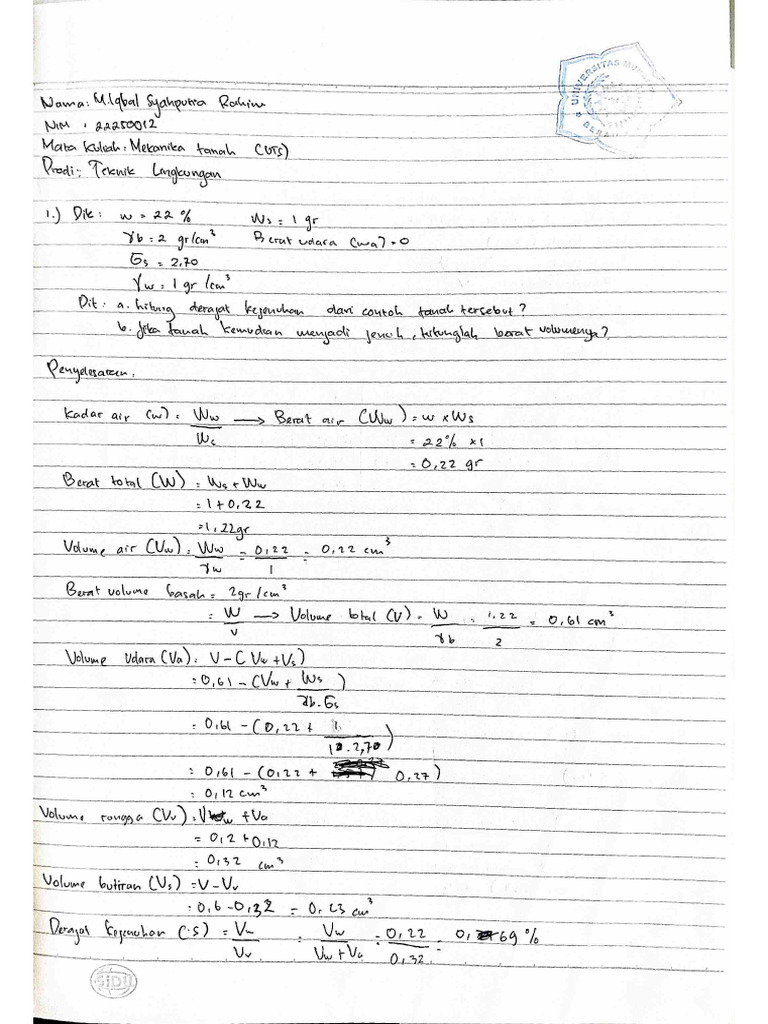 UNIVERSITAS MU
Nama: M.Iqbal Syahputra Rahim
NIM : 22250012
Mata Kuliah: Mekanika tanah (UTS)
Prodi: Teknik Lingkungan
1.) Dik: w = 22 % Ws = 1 gr
γb = 2 gr/cm³ Berat udara (wa) = 0
Gs = 2,70
γw = 1 gr/cm³
Dit: a. hitung derajat kejenuhan dari contoh tanah tersebut?
b. Jika tanah kemudian menjadi jenuh, hitunglah berat volumenya?
Penyelesaian:
Kadar air (w) = Ww/Ws → Berat air (Ww) = w x Ws
= 22% x1
= 0,22 gr
Berat total (W) = Ws + Ww
= 1 + 0,22
= 1,22gr
Volume air (Vw) = Ww/γw = 0,22/1 = 0,22 cm³
Berat volume basah = 2gr/cm³
= W/V → Volume total (V) = W/γb = 1,22/2 = 0,61 cm³
Volume Udara (Va) = V – (Vw + Vs)
= 0,61 – (Vw + Ws/γb.Gs)
= 0,61 – (0,22 + 1/1.2,70)
= 0,61 – (0,22 + 0,27)
= 0,12 cm³
Volume rongga (Vv) = Vw + Va
= 0,2 + 0,12
= 0,32 cm³
Volume butiran (Vs) = V – Vv
= 0,6 – 0,32 = 0,23 cm³
Derajat kejenuhan (S) = Vw/Vv = Vw/Vw + Va = 0,22/0,32 = 0,69 %
SiDU